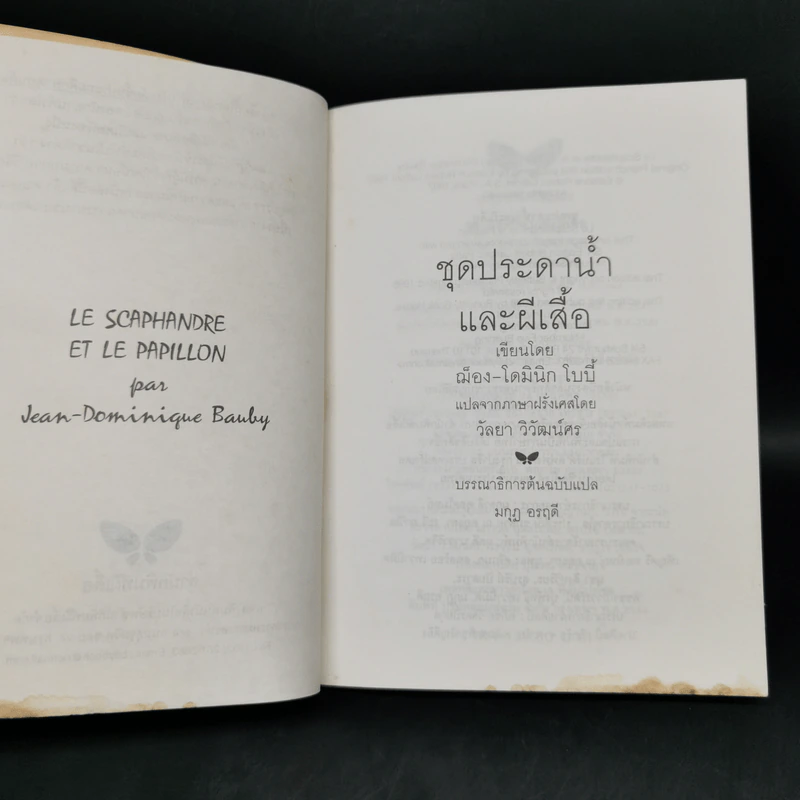 LE SCAPHANDRE
ET LE PAPILLON
par
Jean-Dominique Bauby
ชุดประดาน้ำ
และผีเสื้อ
เขียนโดย
ฌ็อง-โดมินิก โบบี้
แปลจากภาษาฝรั่งเศสโดย
วัลยา วิวัฒน์ศร
บรรณาธิการต้นฉบับแปล
มกุฏ อรฤดี